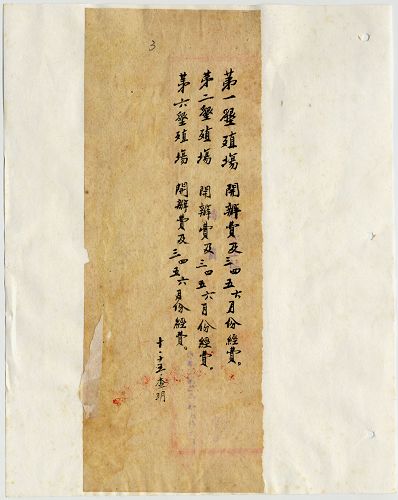 3
第一墾殖場 開辦費及三四五六月份經費。
第二墾殖場 開辦費及三四五六月份經費。
第六墾殖場 開辦費及三四五六月份經費。
十、十五查明